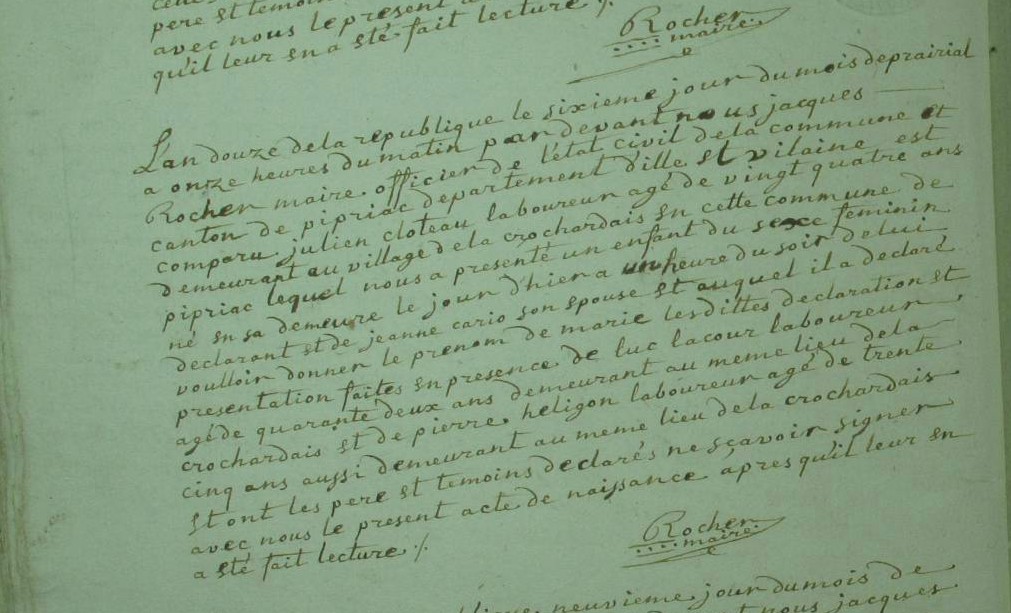 pere et temoin
avec nous le present
qu'il leur en a eté fait lecture ./.
Rocher
maire
Lan douze de la republique le sixieme jour du mois de prairial
a onze heures du matin par devant nous jacques
Rocher maire officier de l'état civil de la commune et
canton de pipriac departement d'ille et vilaine est
comparu julien cloteau laboureur agé de vingt quatre ans
demeurant au village de la crochardais en cette commune de
pipriac lequel nous a presenté un enfant du sexe feminin
né en sa demeure le jour d'hier a un heure du soir de lui
declarant et de jeanne cario son epouse et auquel il a declaré
voulloir donner le prenom de marie lesdittes declaration et
presentation faites en presence de luc lacour laboureur
agé de quarante deux ans demeurant au meme lieu de la
crochardais et de pierre heligon laboureur agé de trente
cinq ans aussi demeurant au meme lieu de la crochardais
et ont les pere et temoins declarés ne sçavoir signer
avec nous le present acte de naissance apres qu'il leur en
a eté fait lecture ./.
Rocher
maire
neuvieme jour du mois de
nous jacques